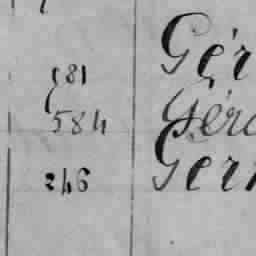 581 Gér
584 Géra
246 Germ